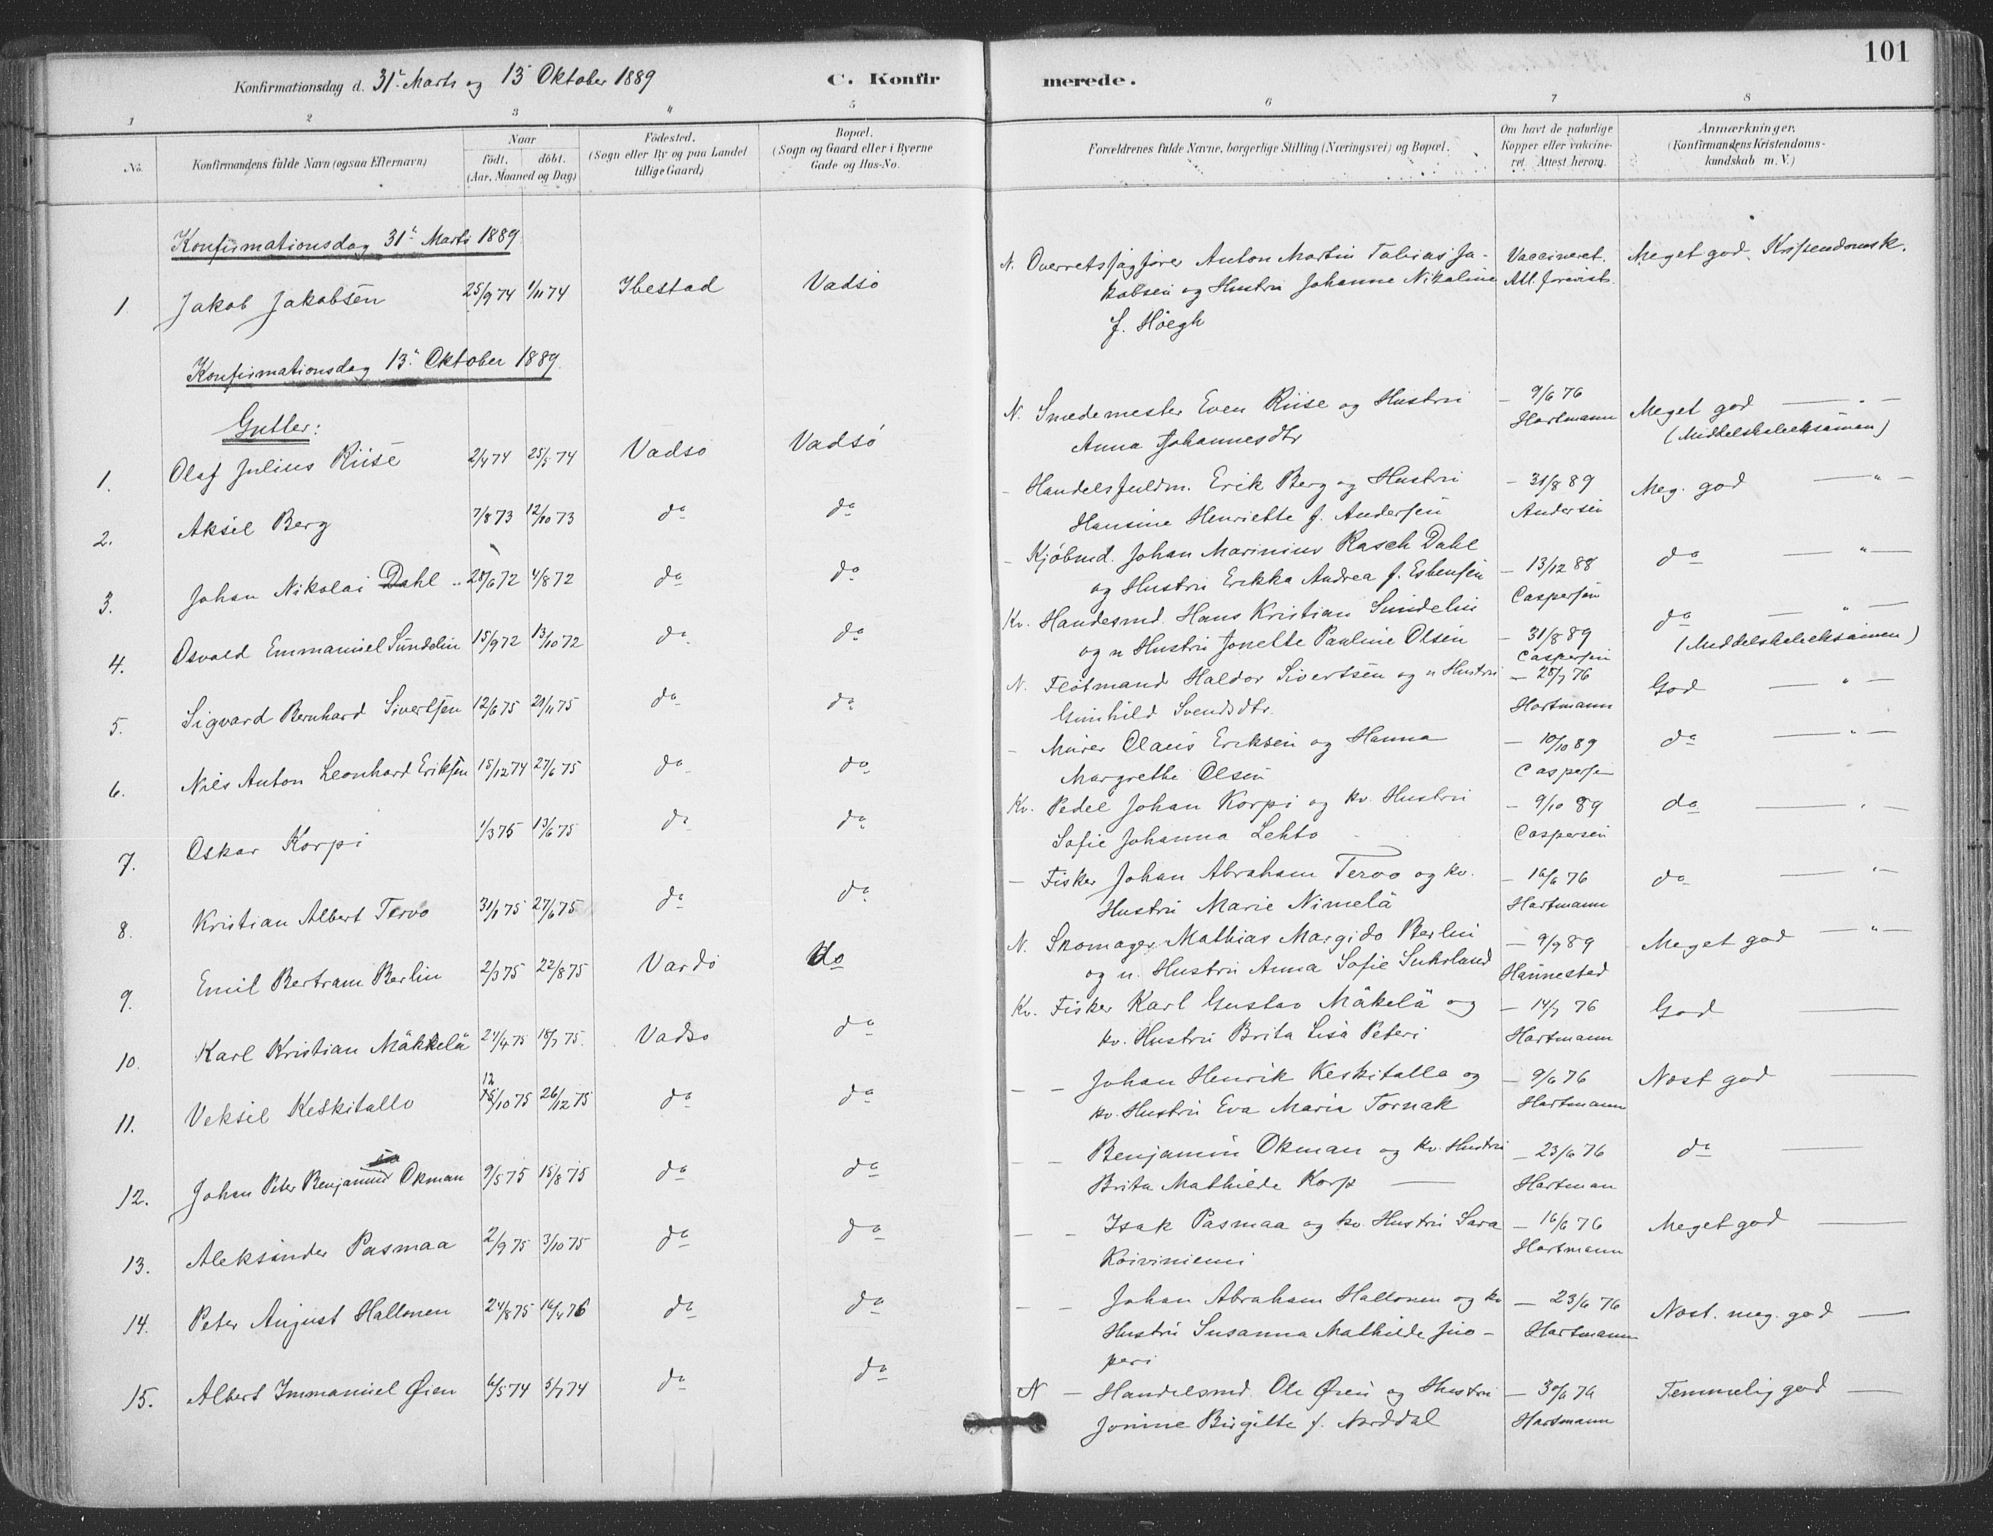 101
Konfirmationsdag d. 31te Marts og 13 Oktober 1889
C. Konfirmerede.
1 2 3 4 5 6 7 8
No.
Konfirmandens fulde Navn (ogsaa Efternavn)
Naar
födt. döbt.
(Aar, Maaned og Dag)
Födested.
(Sogn eller By og paa Landet
tillige Gaard)
Bopæl.
(Sogn og Gaard eller i Byerne
Gade og Hus-No.
Forældrenes fulde Navne, borgerlige Stilling (Næringsvei) og Bopæl.
Om havt de naturlige
Kopper eller vakcine-
ret. Attest herom.
Anmærkninger.
(Konfirmandens Kristendoms-
kundskab m. V.)
Konfirmationsdag 31te Marts 1889.
1. Jakob Jakobsen 25/9 74 1/11 74 Ibestad Vadsö
N. Overretssagfører Anton Martin Tobias Ja-
kobsen og Hustru Johanne Nikoline
f. Höegh
Vaccineret.
Att. forevist.
Meget god. Kristendomsk.
Konfirmationsdag 13. Oktober 1889.
Gutter:
1. Olaf Julius Riise 2/4 74 25/5 74 Vadsö Vadsö
N. Smedemester Even Riise og Hustru
Anna Johannesdtr
– 9/6 76
Hartmann
Meget god — " —
(Middelskoleeksamen)
2. Aksel Berg 7/8 73 12/10 73 do do
– Handelsfuldm. Erik Berg og Hustru
Hansine Henriette f. Andersen
– 31/8 89
Andersen
Meg. god — " —
3. Johan Nikolai Dahl 28/6 72 4/8 72 do do
– Kjöbmd. Johan Marinius Rasch Dahl
og Hustru Erikka Andrea f. Esbensen
– 13/12 88
Caspersen
do — " —
4. Osvald Emmanuel Sundelin 15/9 72 13/10 72 do do
Kv. Handesmd. Hans Kristian Sundelin
og n Hustru Jonette Pauline Olsen
– 31/8 89
Caspersen
do — " —
(Middelskoleeksamen)
5. Sigvard Bernhard Sivertsen 12/6 75 21/11 75 do do
N. Flötmand Haldor Sivertsen og n Hustru
Gunhild Svendsdtr.
– 28/7 76
Hartmann
God — " —
6. Nils Anton Leonhard Eriksen 15/12 74 27/6 75 do do
– Murer Olaus Eriksen og Hanna
Margrethe Olsen
– 10/10 89
Caspersen
do — " —
7. Oskar Korpi 1/3 75 13/6 75 do do
Kv. Pedel Johan Korpi og kv. Hustru
Sofie Johanna Lehto
– 9/10 89
Caspersen
do — " —
8. Kristian Albert Tervo 31/1 75 27/6 75 do do
– Fisker Johan Abraham Tervo og kv.
Hustru Marie Nimelä
– 16/6 76
Hartmann
do — " —
9. Emil Bertram Berlin 2/3 75 22/8 75 Vardö do
N. Skomager Mathias Margido Berlin
og n. Hustru Anna Sofie Suhrland
– 9/9 89
Hannestad
Meget god — " —
10. Karl Kristian Mäkkelä 24/4 75 18/7 75 Vadsö do
Kv. Fisker Karl Gustav Mäkelä og
kv. Hustru Brita Lisa Peteri
– 14/7 76
Hartmann
God —
11. Veksel Keskitallo 12/10 75 26/12 75 do do
– – Johan Henrik Keskitallo og
kv. Hustru Eva Maria Tornak
– 9/6 76
Hartmann
Nost god —
12. Johan Peter Benjamin Okman 9/5 75 15/8 75 do do
– – Benjamin Okman og kv. Hustru
Brita Mathilde Korp —
– 23/6 76
Hartman
do —
13. Aleksander Pasmaa 2/9 75 3/10 75 do do
– – Isak Pasmaa og kv. Hustru Sara
Koiviniemi
– 16/6 76
Hartmann
Meget god —
14. Peter August Haltonen 24/8 75 16/4 76 do do
– – Johan Abraham Haltonen og kv
Hustru Susanna Mathilde Juo-
peri
– 23/6 76
Hartmann
Nost. meg. god —
15. Albert Immanuel Øien 6/5 74 5/7 74 do do
N – Handelsmd. Ole Øien og Hustru
Jonine Birgitte f. Norddal
– 30/6 76
Hartmann
Temmelig god —